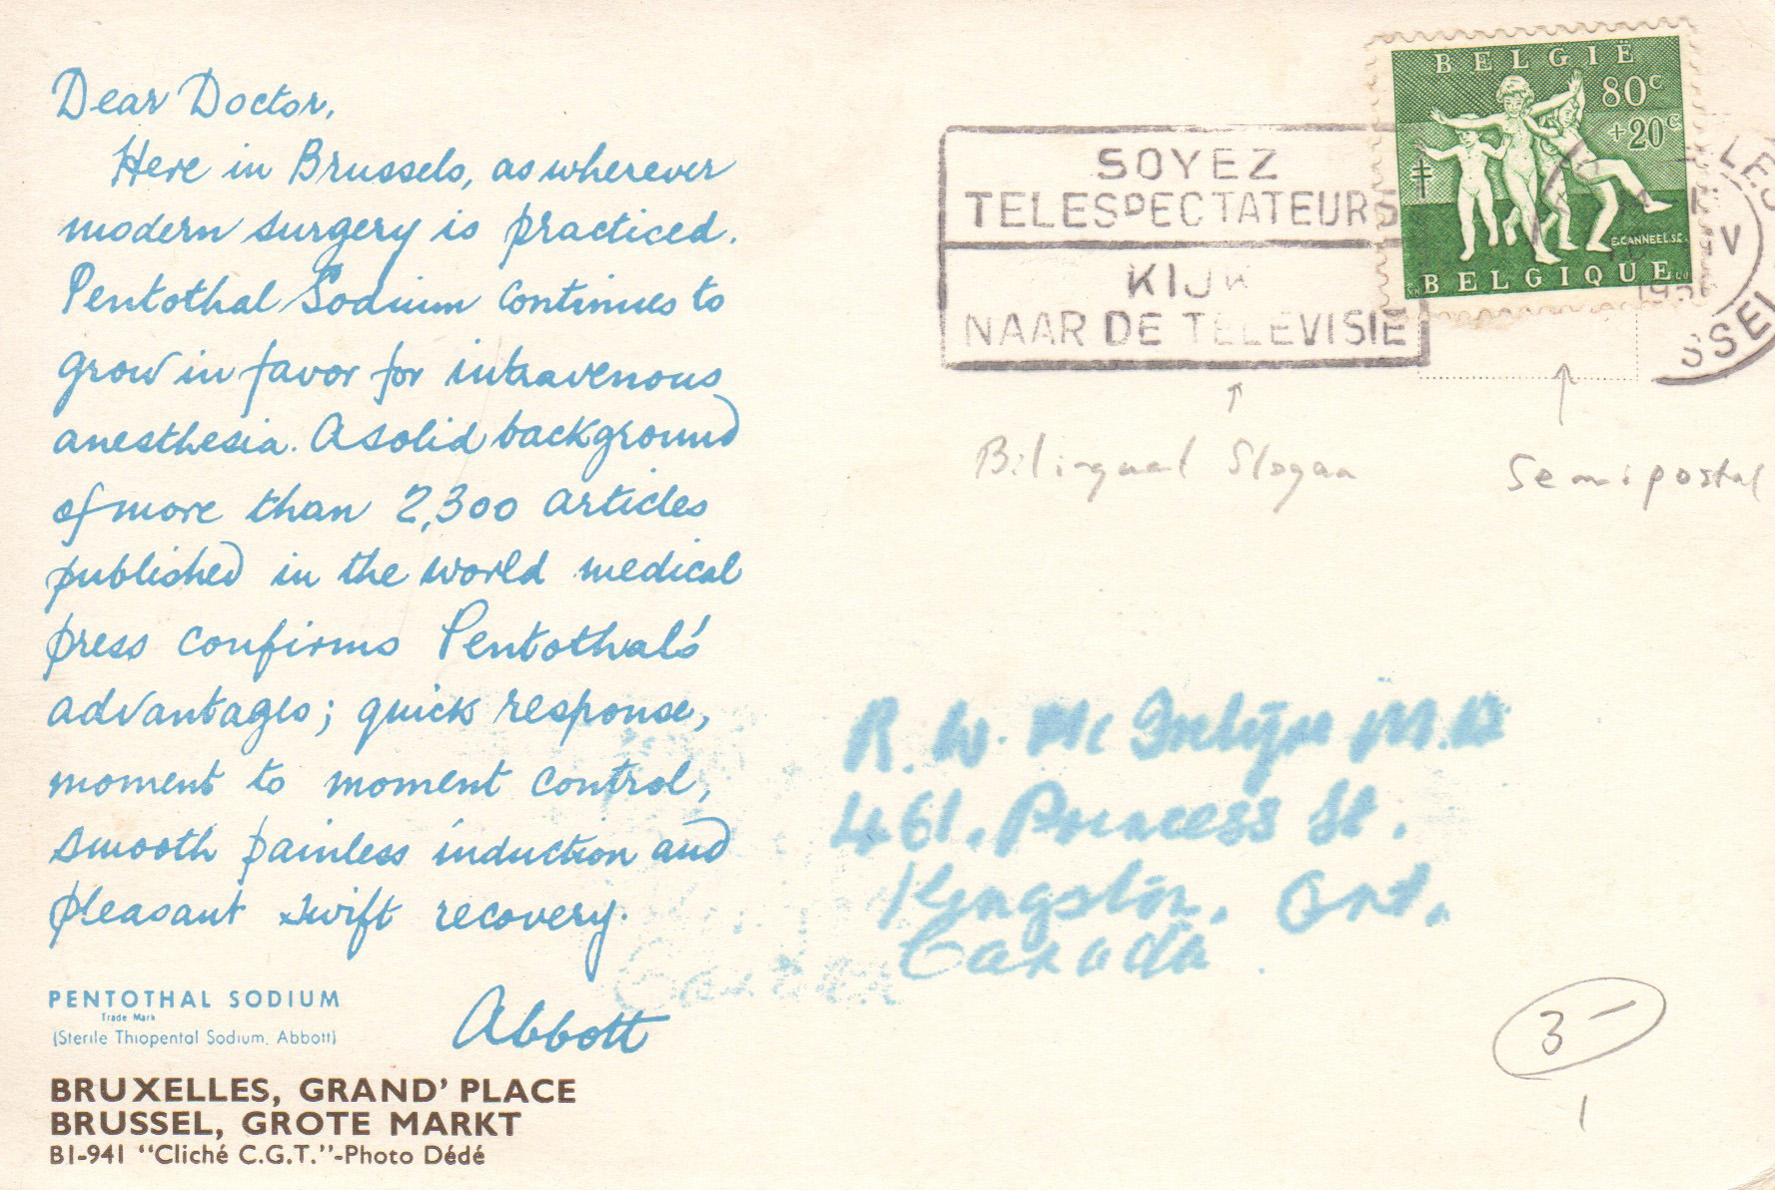 Dear Doctor,
Here in Brussels, as wherever
modern surgery is practiced.
Pentothal Sodium continues to
grow in favor for intravenous
anesthesia. A solid background
of more than 2,300 articles
published in the world medical
press confirms Pentothal's
advantages; quick response,
moment to moment control,
smooth painless induction and
pleasant swift recovery.
Abbott
PENTOTHAL SODIUM
Trade Mark
(Sterile Thiopental Sodium, Abbott)
BRUXELLES, GRAND' PLACE
BRUSSEL, GROTE MARKT
B1-941 "Cliché C.G.T."-Photo Dédé
SOYEZ
TELESPECTATEURS
KIJK
NAAR DE TELEVISIE
BELGIË
80c
+20c
E.CANNEEL.SC.
BELGIQUE
Bilingual Slogan
Semipostal
R. W. Mc M.D
461. Princess St.
Kingston. Ont.
Canada
3-
1